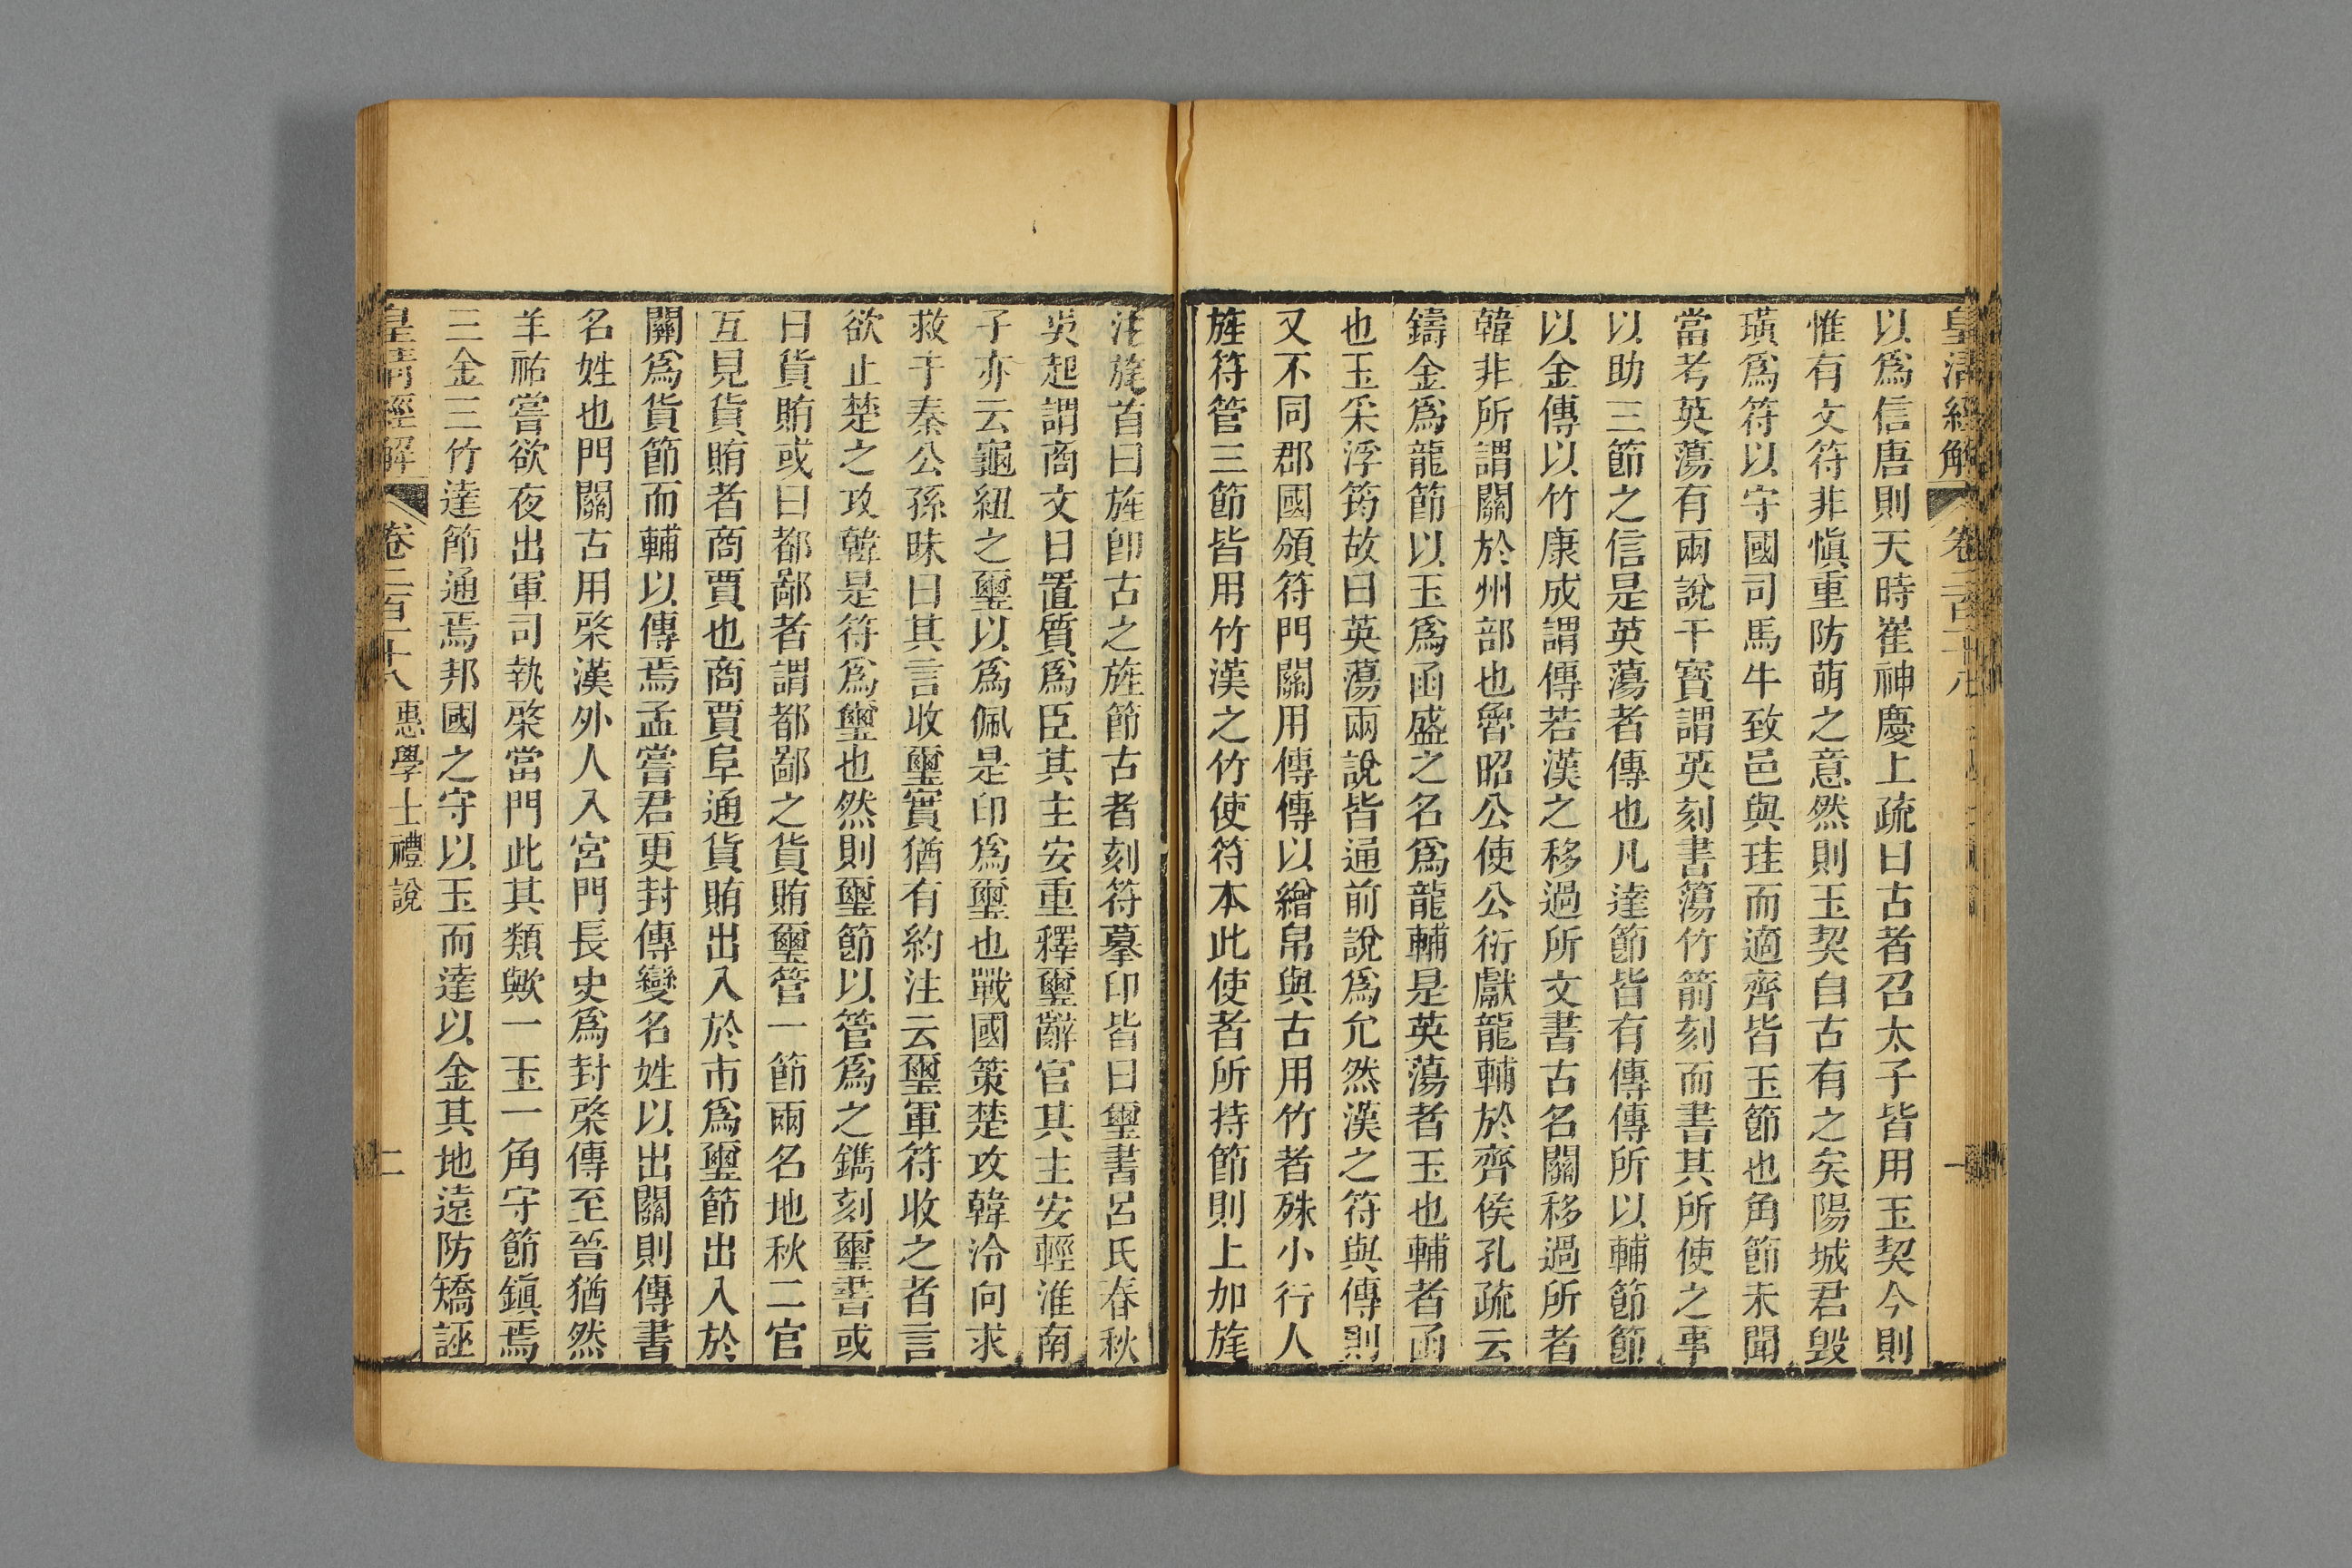 皇清經解 卷二百十八 一
以爲信唐則天時崔神慶上疏曰古者召太子皆用玉契今則
惟有文符非愼重防萌之意然則玉契自古有之矣陽城君毁
璜爲符以守國司馬牛致邑與珪而適齊皆玉節也角節未聞
當考英蕩有兩說干寶謂英刻書蕩竹箭刻而書其所使之事
以助三節之信是英蕩者傳也凡達節皆有傳傳所以輔節節
以金傳以竹康成謂傳若漢之移過所文書古名關移過所者
韓非所謂關於州部也魯昭公使公衍獻龍輔於齊侯孔疏云
鑄金爲龍節以玉爲函盛之名爲龍輔是英蕩者玉也輔者函
也玉采浮筠故曰英蕩兩說皆通前說爲允然漢之符與傳則
又不同郡國頒符門關用傳傳以繒帛與古用竹者殊小行人
旌符管三節皆用竹漢之竹使符本此使者所持節則上加旄
注旄首曰旌卽古之旌節古者刻符摹印皆曰璽書呂氏春秋
吳起謂商文曰置質爲臣其主安重釋璽辭官其主安輕淮南
子亦云龜紐之璽以爲佩是印爲璽也戰國策楚攻韓泠向求
救于秦公孫昧曰其言收璽實猶有約注云璽軍符收之者言
欲止楚之攻韓是符爲璽也然則璽節以管爲之鐫刻璽書或
曰貨賄或曰都鄙者謂都鄙之貨賄璽管一節兩名地秋二官
互見貨賄者商賈也商賈阜通貨賄出入於市爲璽節出入於
關爲貨節而輔以傳焉孟嘗君更封傳變名姓以出關則傳書
名姓也門關古用棨漢外人入宮門長史爲封棨傳至晉猶然
羊祜嘗欲夜出軍司執棨當門此其類歟一玉一角守節鎭焉
三金三竹達節通焉邦國之守以玉而達以金其地遠防矯誣
皇清經解 卷二百十八 惠學士禮說 二